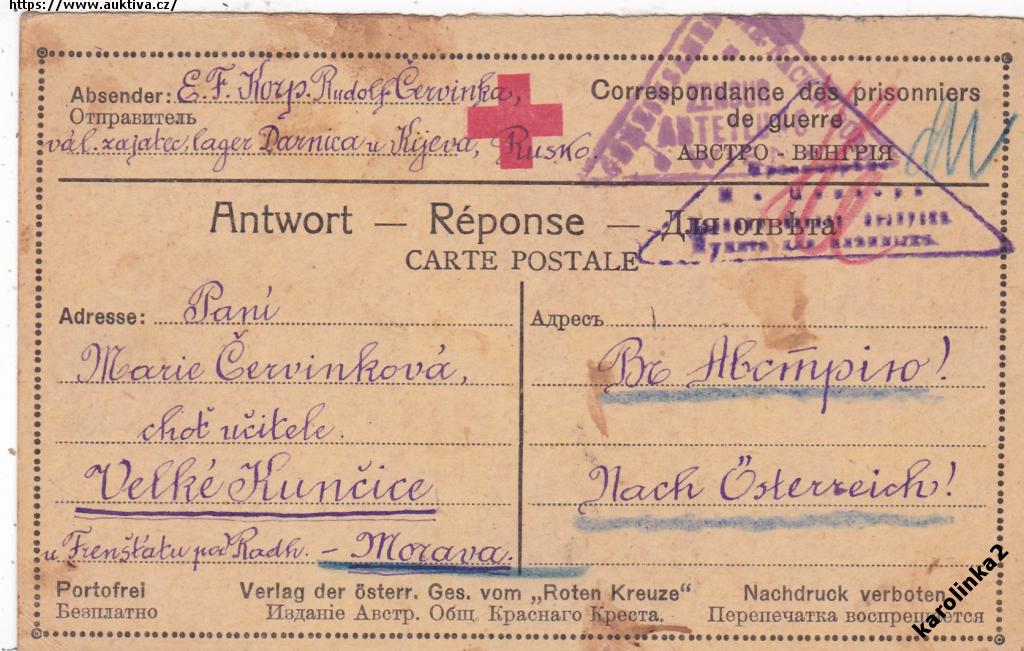 https://www.auktiva.cz/
Absender: E. F. Korp. Rudolf Červinka,
Отправитель
vál. zajatec, lager Darnica u Kijeva, Rusko.
Correspondance des prisonniers
de guerre
АВСТРО - ВЕНГРІЯ
ZENSUR
ABTEILUNG
Antwort — Réponse — Для отвѣта
CARTE POSTALE
Adresse: Paní
Marie Červinková,
choť učitele.
Velké Kunčice
u Frenštátu pod Radh. - Morava.
Адресъ
Въ Австрію!
Nach Österreich!
Portofrei
Безплатно
Verlag der österr. Ges. vom „Roten Kreuze“
Изданіе Австр. Общ. Краснаго Креста.
Nachdruck verboten
Перепечатка воспрещается
karolinka2